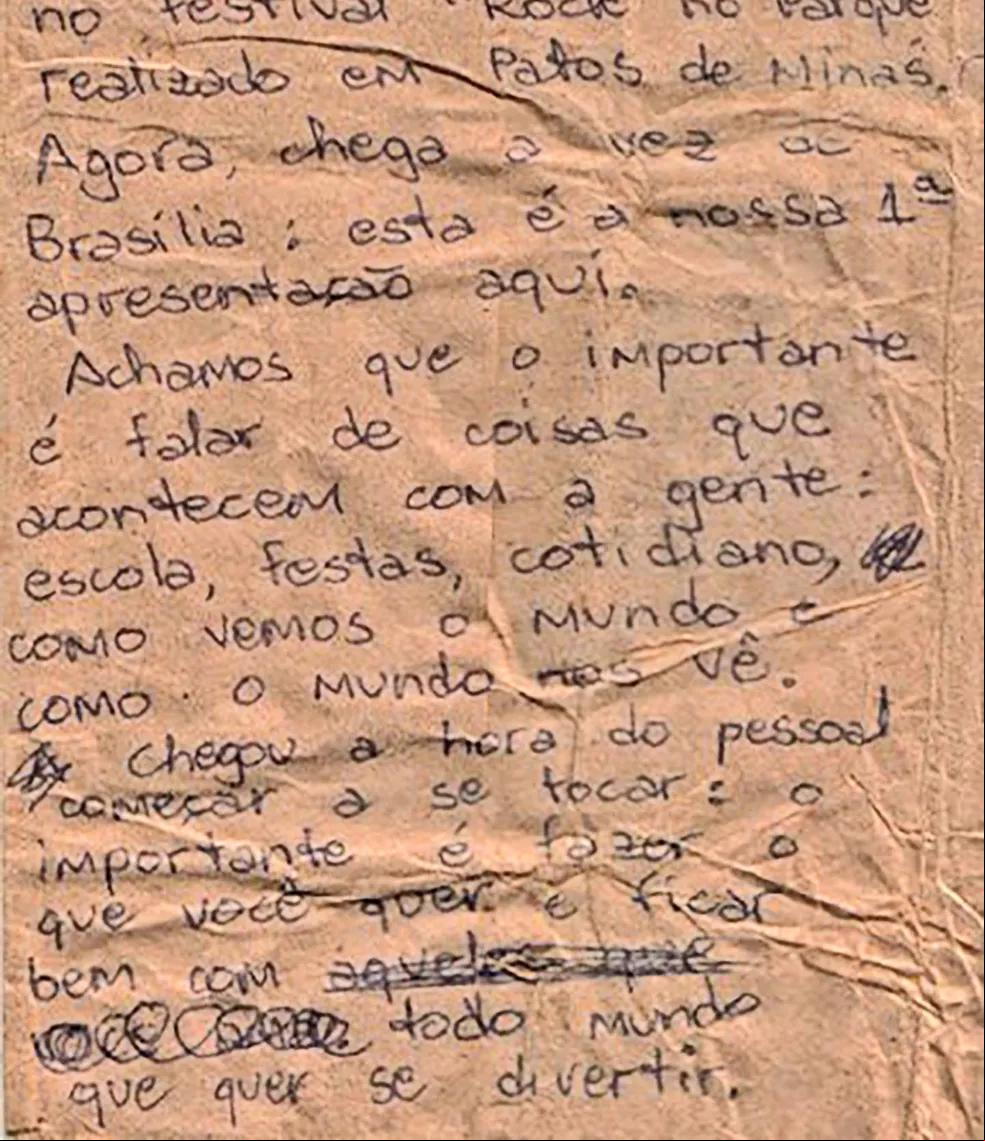 no festival "Rock no Parque
realizado em Patos de Minas.
Agora, chega a vez de
Brasília: esta é a nossa 1ª
apresentação aqui.
Achamos que o importante
é falar de coisas que
acontecem com a gente:
escola, festas, cotidiano,
como vemos o mundo e
como o mundo nos vê.
Chegou a hora do pessoal
começar a se tocar: o
importante é fazer o
que você quer e ficar
bem com aqueles que
todo mundo
que quer se divertir.